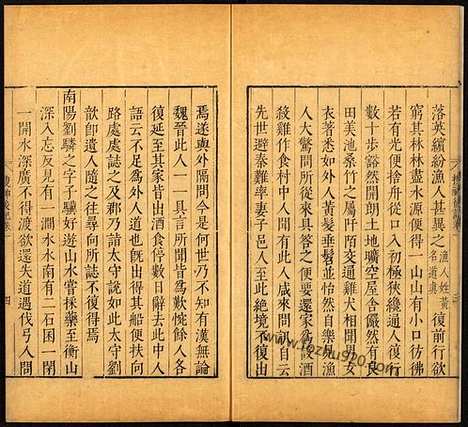 落英繽紛漁人甚異之漁人姓黃名道真復前行欲
窮其林林盡水源便得一山山有小口彷彿
若有光便捨舟從口入初極狹纔通人復行
數十步豁然開朗土地曠空屋舍儼然有良
田美池桑竹之屬阡陌交通雞犬相聞男女
衣著悉如外人黃髮垂髫並怡然自樂見漁
人大驚問所從來具答之便要還家為設酒
殺雞作食村中人聞有此人咸來問訊自云
先世避秦難率妻子邑人至此絕境不復出
焉遂與外隔問今是何世乃不知有漢無論
魏晉此人一一具言所聞皆為歎惋餘人各
復延至其家皆出酒食停數日辭去此中人
語云不足為外人道也既出得其船便扶向
路處處誌之及郡乃詣太守說如此太守劉
歆即遣人隨之往尋向所誌不復得焉
南陽劉驎之字子驥好遊山水嘗採藥至衡山
深入忘反見有一澗水水南有二石囷一閉
一開水深廣不得渡欲還失道遇伐弓人問
四